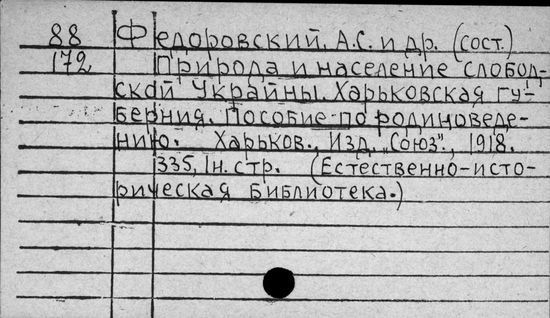 88 Федоровский, А.С. и др. (сост.)
172 Природа и население слобод-
ской Украйны. Харьковская гу-
берния. Пособие по родиноведе-
нию. Харьков., Изд. „Союз", 1918.
335, 1н. стр. (Естественно-исто-
рическая библиотека.)